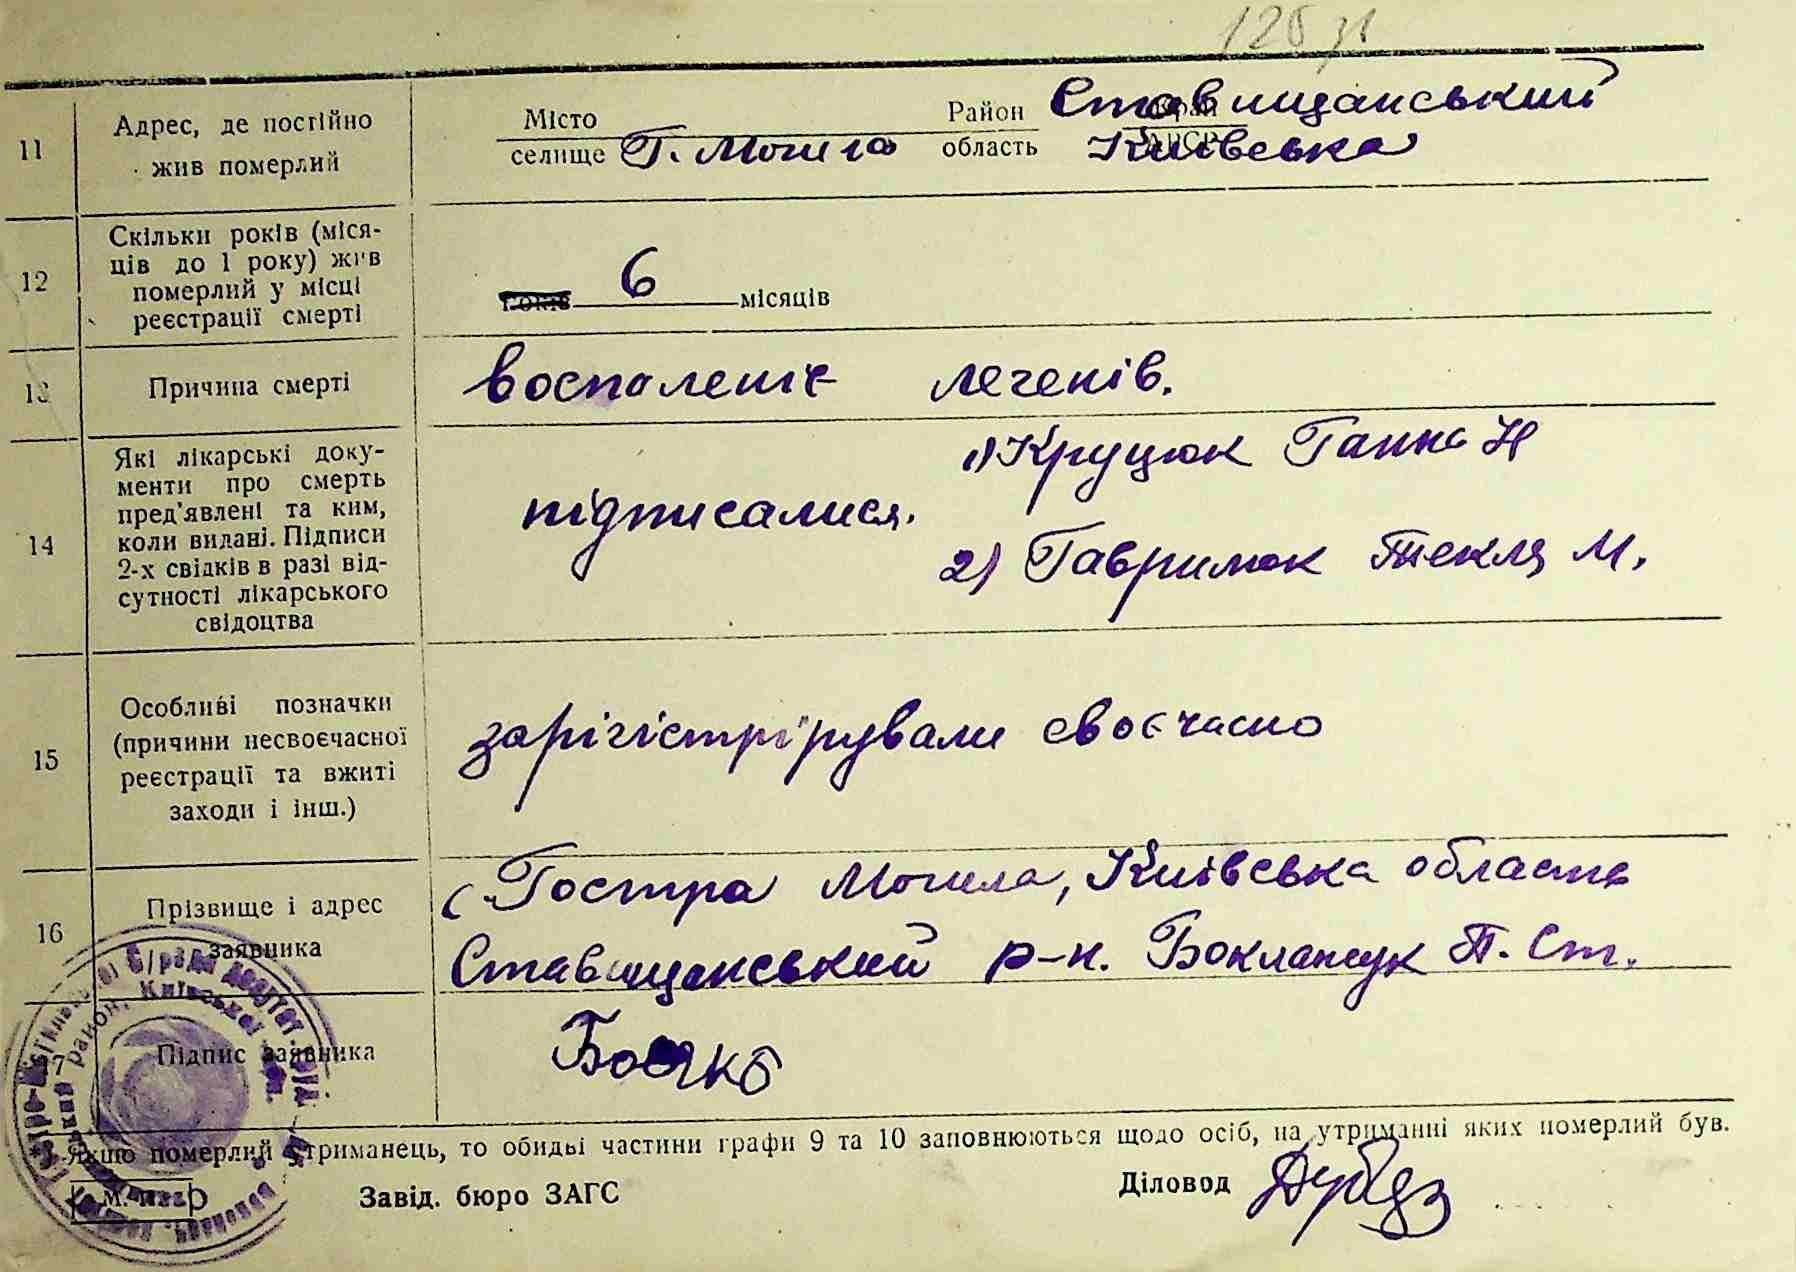 126 зв
11
Адрес, де постійно
жив померлий
Місто
селище Г. Могила
Район Ставищанський
область Київська
12
Скільки років (міся-
ців до 1 року) жив
померлий у місці
реєстрації смерті
років 6 місяців
13
Причина смерті
воспаленіє легенів.
14
Які лікарські доку-
менти про смерть
пред'явлені та ким,
коли видані. Підписи
2-х свідків в разі від-
сутності лікарського
свідоцтва
підписалися.
1) Круцюк Ганна Н
2) Гаврилюк Текля М.
15
Особливі позначки
(причини несвоєчасної
реєстрації та вжиті
заходи і інш.)
зарігістрірували своєчасно
16
Прізвище і адрес
заявника
с. Гостра Могила, Київська область
Ставищанський р-н. Бокланчук Т. Ст.
17
Підпис заявника
Якщо померлий утриманець, то обидві частини графи 9 та 10 заповнюються щодо осіб, на утриманні яких померлий був.
М. П.
Завід. бюро ЗАГС
Діловод